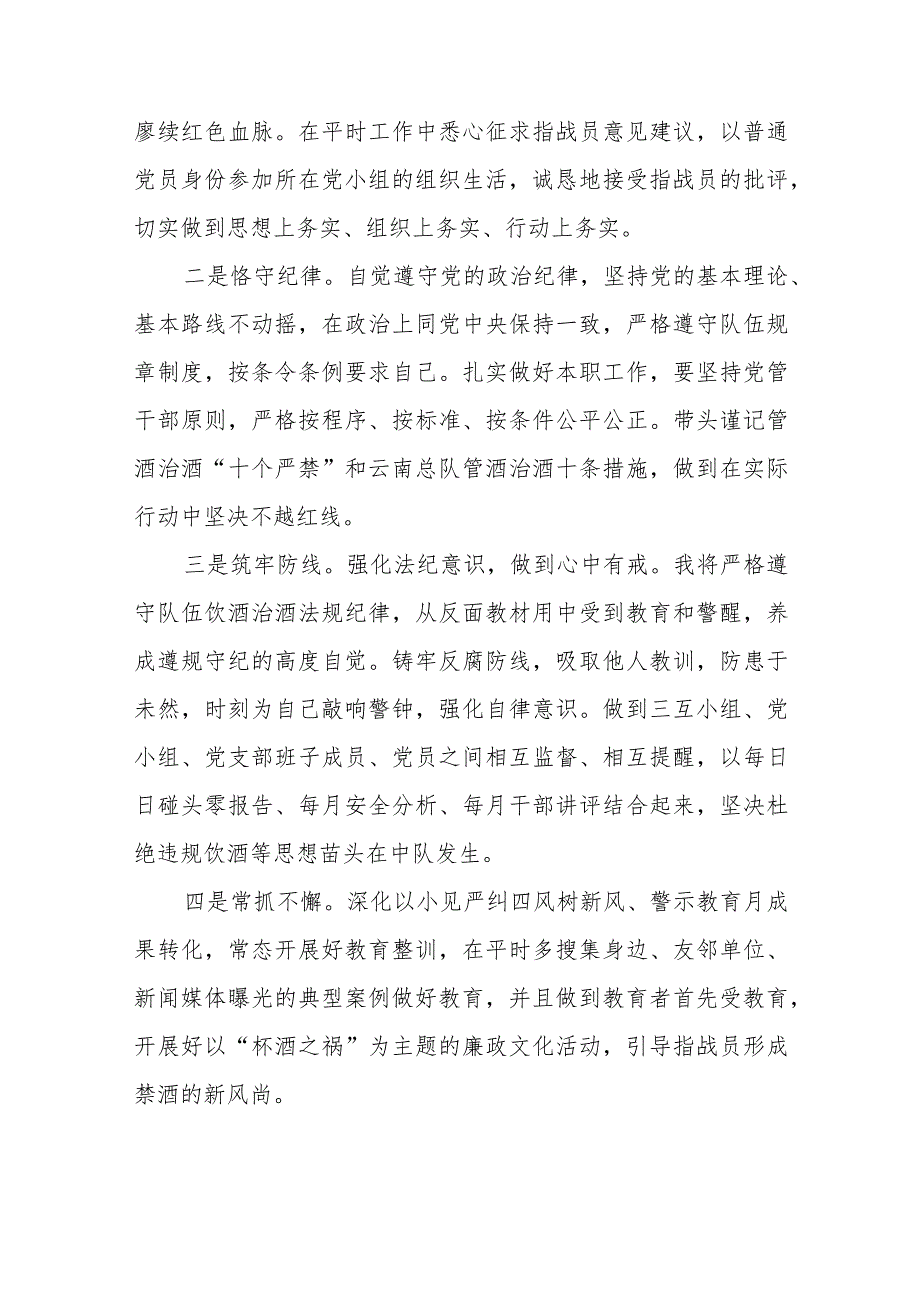 廖续红色血脉。在平时工作中悉心征求指战员意见建议，以普通
党员身份参加所在党小组的组织生活，诚恳地接受指战员的批评，
切实做到思想上务实、组织上务实、行动上务实。
二是恪守纪律。自觉遵守党的政治纪律，坚持党的基本理论、
基本路线不动摇，在政治上同党中央保持一致，严格遵守队伍规
章制度，按条令条例要求自己。扎实做好本职工作，要坚持党管
干部原则，严格按程序、按标准、按条件公平公正。带头谨记管
酒治酒“十个严禁”和云南总队管酒治酒十条措施，做到在实际
行动中坚决不越红线。
三是筑牢防线。强化法纪意识，做到心中有戒。我将严格遵
守队伍饮酒治酒法规纪律，从反面教材用中受到教育和警醒，养
成遵规守纪的高度自觉。铸牢反腐防线，吸取他人教训，防患于
未然，时刻为自己敲响警钟，强化自律意识。做到三互小组、党
小组、党支部班子成员、党员之间相互监督、相互提醒，以每日
日碰头零报告、每月安全分析、每月干部讲评结合起来，坚决杜
绝违规饮酒等思想苗头在中队发生。
四是常抓不懈。深化以小见严纠四风树新风、警示教育月成
果转化，常态开展好教育整训，在平时多搜集身边、友邻单位、
新闻媒体曝光的典型案例做好教育，并且做到教育者首先受教育，
开展好以“杯酒之祸”为主题的廉政文化活动，引导指战员形成
禁酒的新风尚。